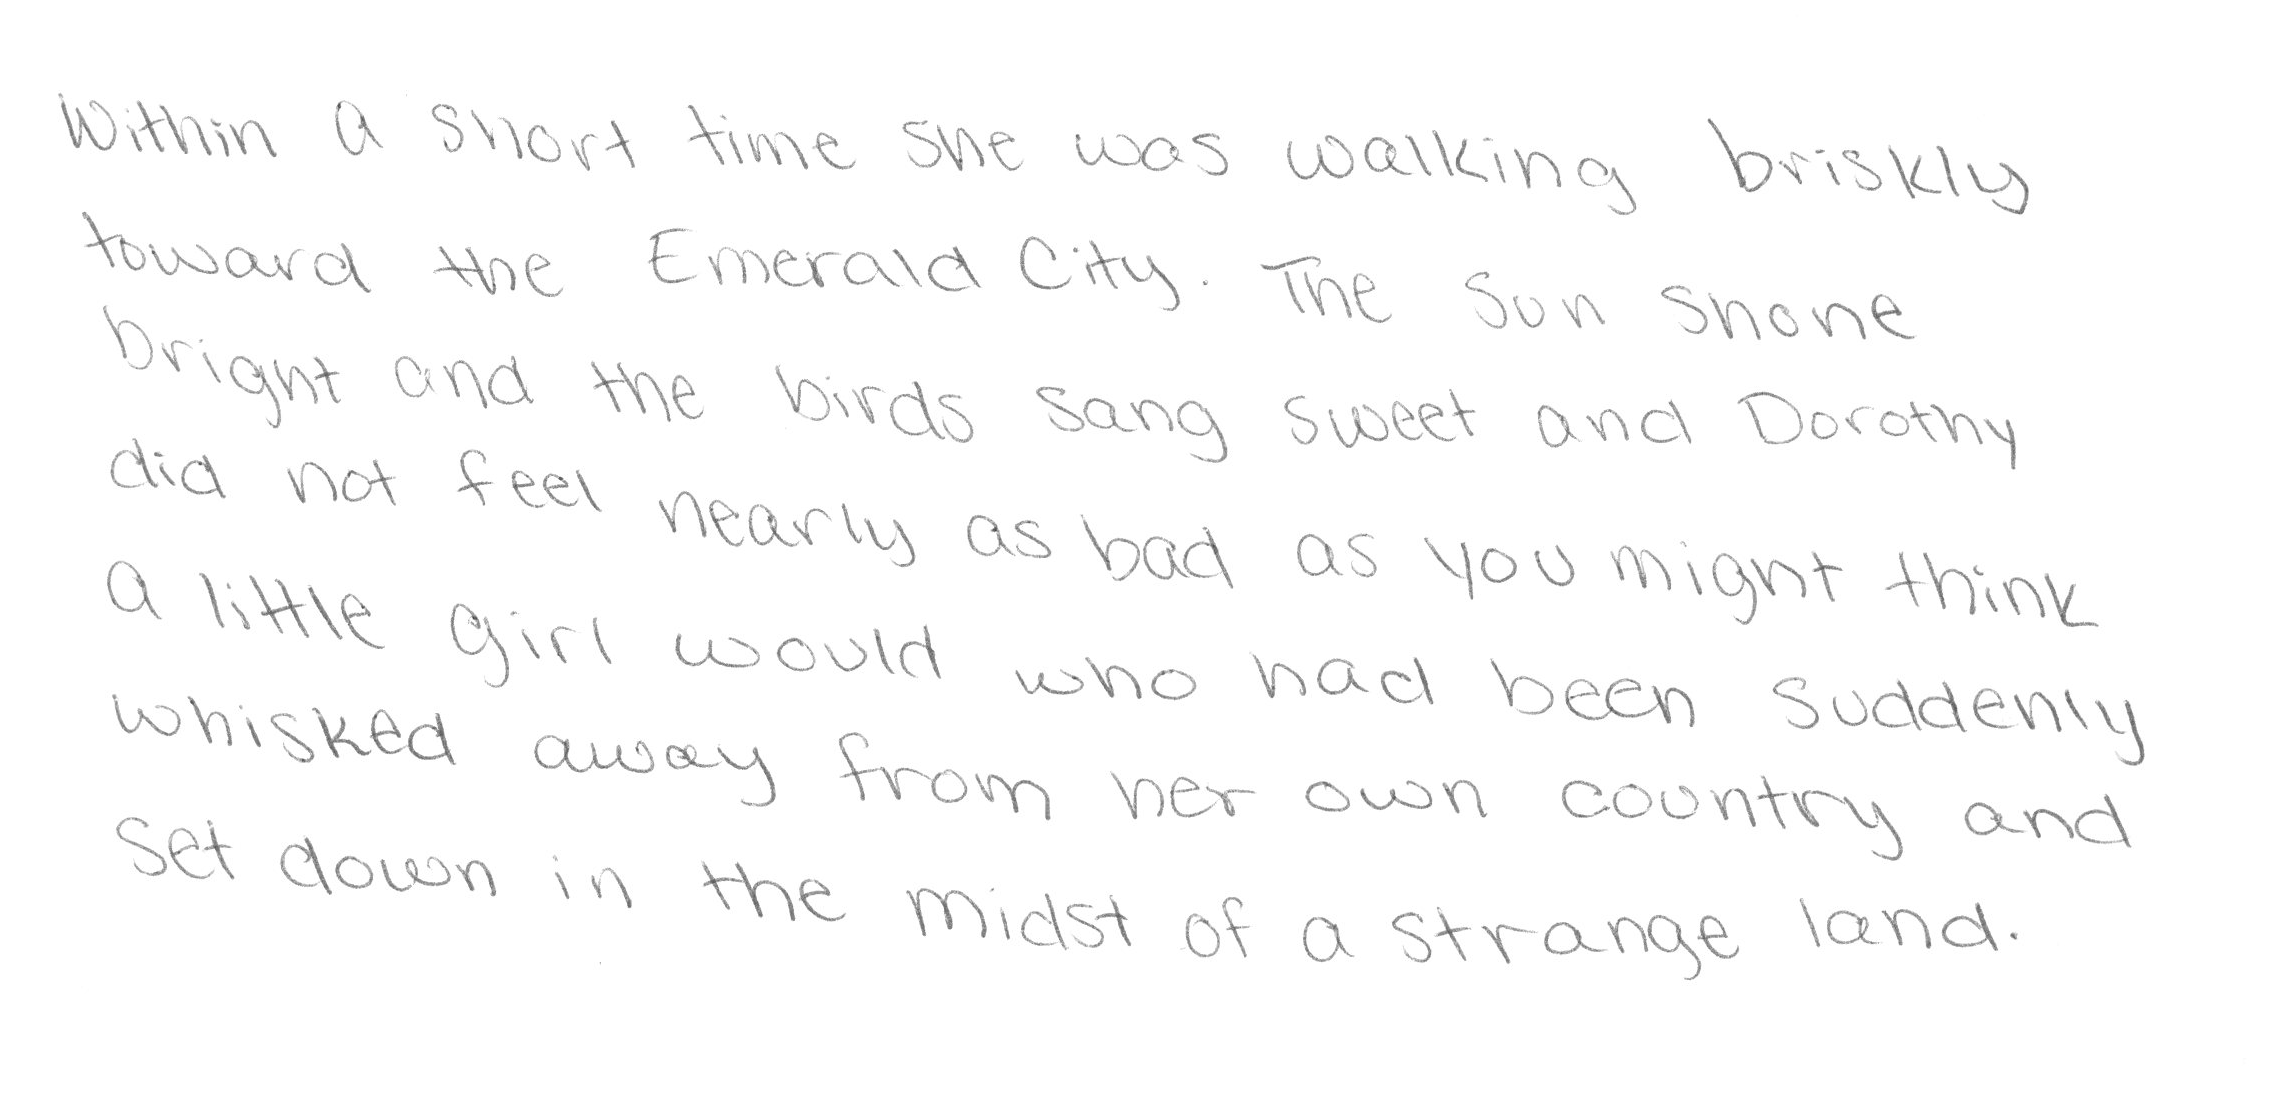 Within a short time she was walking briskly
toward the Emerald City. The Sun shone
bright and the birds sang sweet and Dorothy
did not feel nearly as bad as you might think
a little girl would who had been suddenly
whisked away from her own country and
set down in the midst of a strange land.